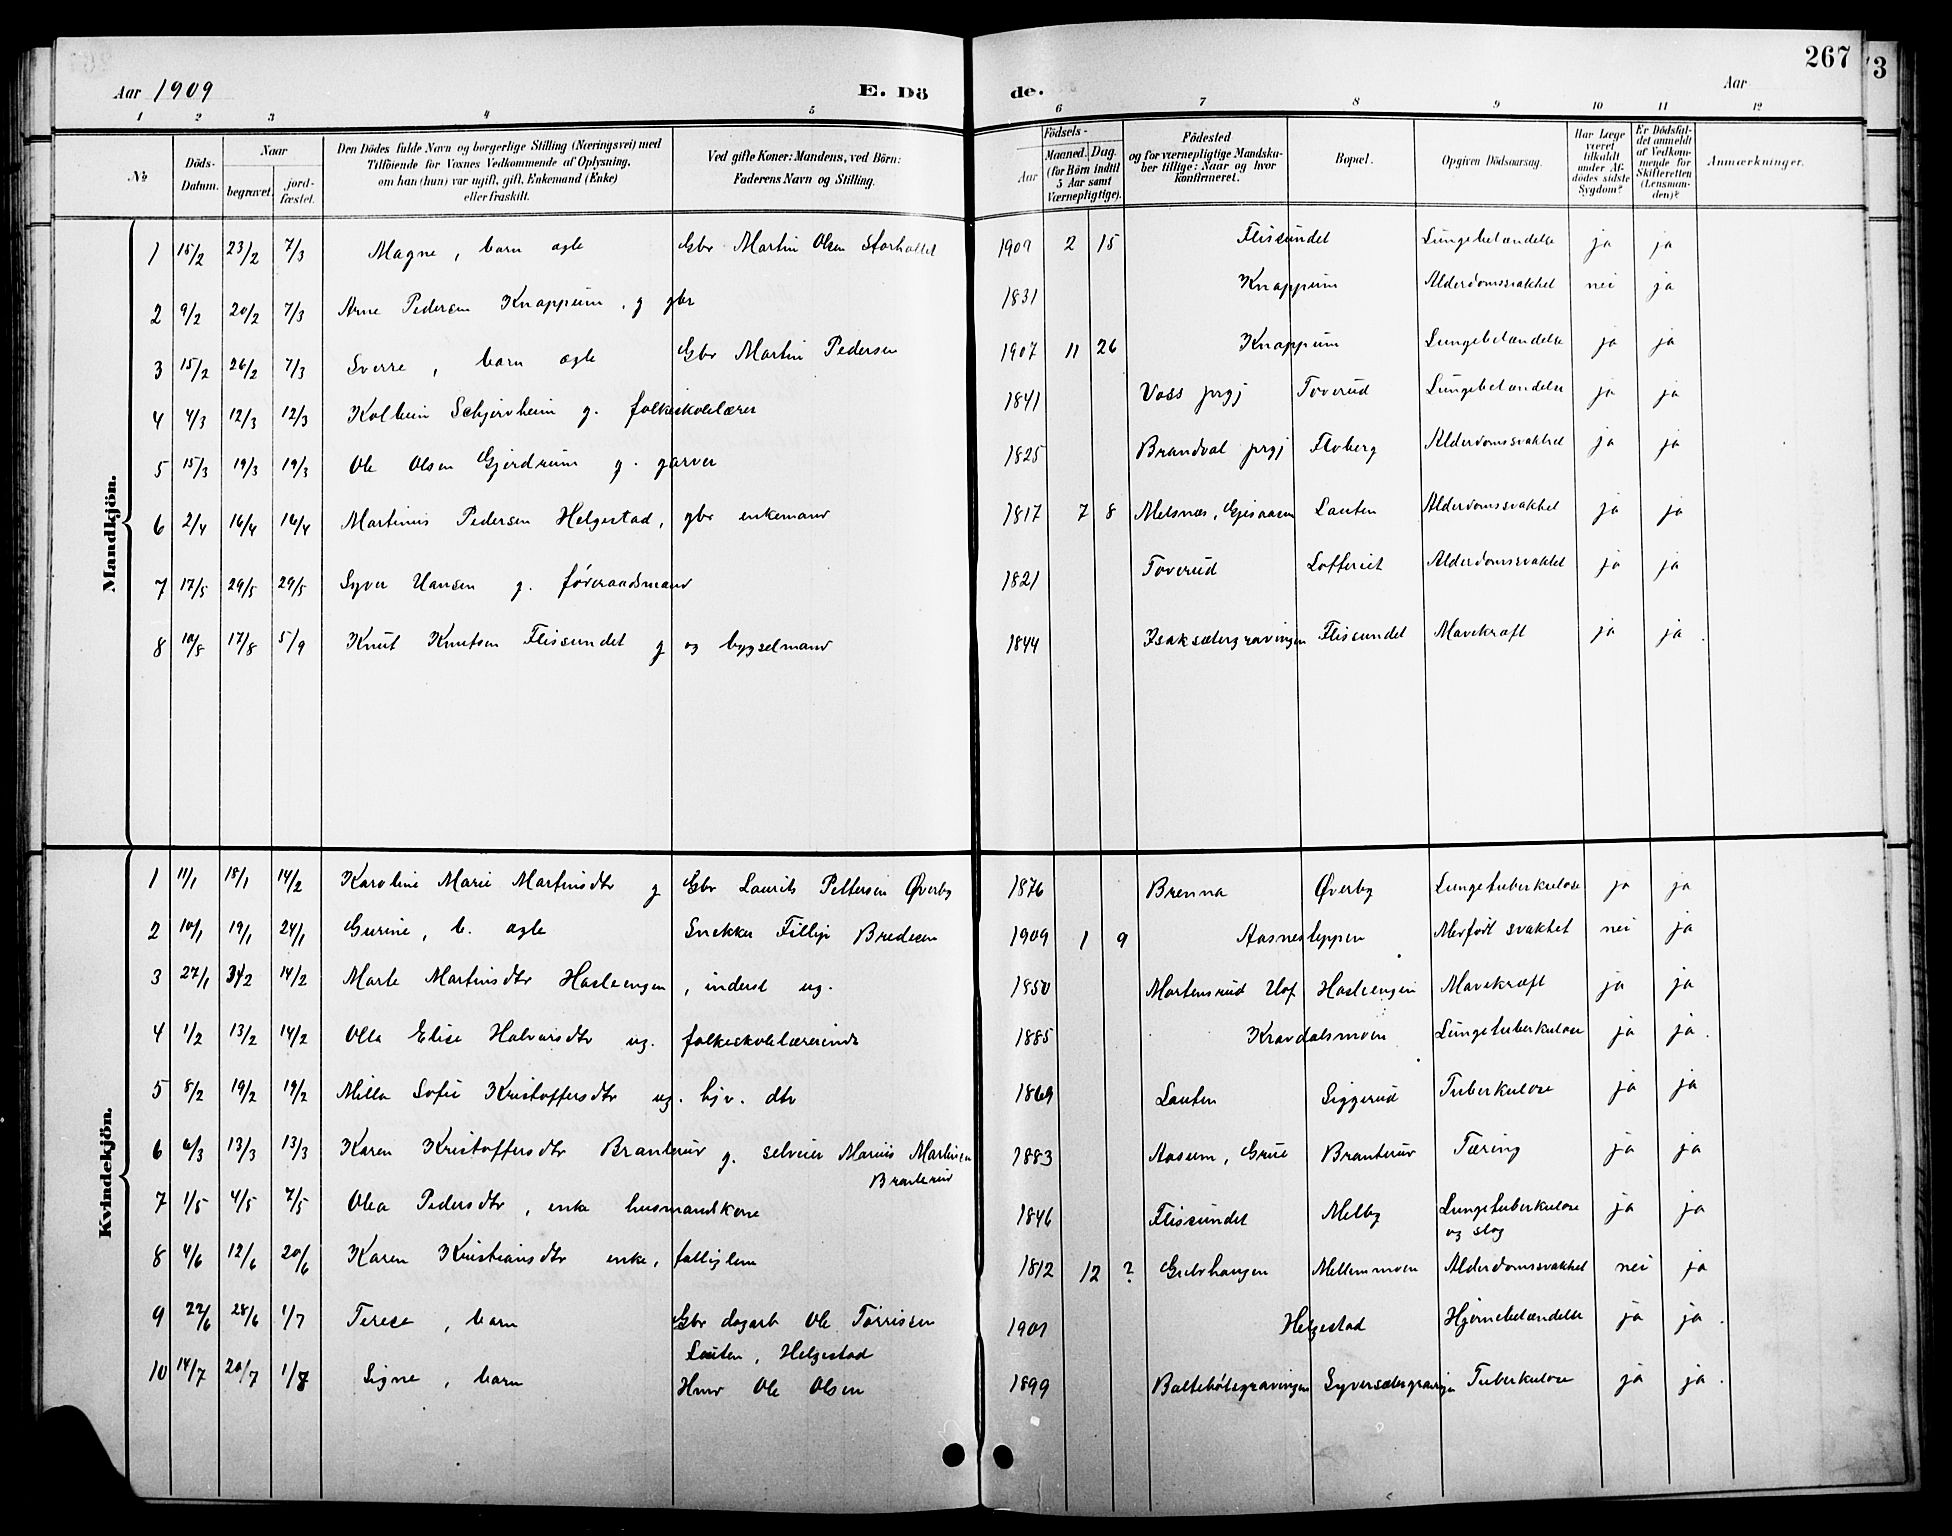 267
73
Aar 1909
E. Dö
de.
Aar
1 2 3 4 5 6 7 8 9 10 11 12
No
Döds-Datum.
Naar
begravet.
jord-fæstet.
Den Dödes fulde Navn og borgerlige Stilling (Næringsvei) med
Tilföiende for Voxnes Vedkommende af Oplysning,
om han (hun) var ugift, gift, Enkemand (Enke)
eller fraskilt.
Ved gifte Koner: Mandens, ved Börn:
Faderens Navn og Stilling.
Födsels-
Aar
Maaned. Dag.
(for Börn indtil
5 Aar samt
Værnepligtige).
Födested
og for værnepligtige Mandska-
ber tillige: Naar og hvor
konfirmeret.
Bopæl.
Opgiven Dödsaarsag.
Har Læge
været
tilkaldt
under Af-
dödes sidste
Sygdom?
Er Dödsfal-
det anmeldt
af Vedkom-
mende for
Skifteretten
(Lensman-
den)?
Anmærkninger.
Mandkjön.
1 15/2 23/2 7/3 Magne, barn ægte Gbr Martin Olsen Storholtet 1909 2 15 Flisundet Lungebetændelse ja ja
2 9/2 20/2 7/3 Arne Pedersen Knappum, g gbr 1831 Knappum Alderdomssvakhet nei ja
3 15/2 26/2 7/3 Sverre, barn ægte Gbr Martin Pedersen 1907 11 26 Knappum Lungebetændelse ja ja
4 4/3 12/3 12/3 Kolbein Schjervheim g. folkeskolelærer 1841 Voss prgj Toverud Lungebetændelse ja ja
5 15/3 19/3 19/3 Ole Olsen Gjerdrum g. garver 1825 Brandval prgj Floberg Alderdomssvakhet ja ja
6 2/4 16/4 16/4 Martinus Pedersen Helgestad, gbr enkemand 1817 7 8 Melsnæs, Gjesaasen Lauten Alderdomssvakhet ja ja
7 17/5 29/5 29/5 Syver Hansen g. föderaadsmand 1821 Toverud Lofteriet Alderdomssvakhet ja ja
8 10/8 17/8 5/9 Knut Knutsen Flisundet g og bygselmand 1844 Isaksætergravingen Flisundet Mavekræft ja ja.
Kvindekjön.
1 11/1 18/1 14/2 Karoline Marie Martinsdtr g Gbr Laurits Pettersen Øverby 1876 Brenna Øverby Lungetuberkulose ja ja
2 10/1 19/1 24/1 Gurine, b. ægte Snekker Fillip Bredesen 1909 1 9 Aasnesleppen Medfödt svakhet nei ja
3 27/1 3/2 14/2 Marte Martinsdtr Hasleengen, inderst ug. 1850 Martensrud Hof Hasleengen Mavekræft ja ja
4 1/2 13/2 14/2 Olla Elise Halvorsdtr ug. folkeskolelærerinde 1885 Kravdalsmoen Lungetuberkulose ja ja.
5 8/2 19/2 19/2 Milla Sofie Kristoffersdtr ug. hjv. dtr 1869 Lauten Siggerud Tuberkulose ja ja
6 6/3 13/3 13/3 Karen Kristoffersdtr Branterud g. selveier Marius Martinsen 1883 Aasum, Grue Branterud Tæring ja ja
Branterud
7 1/5 4/5 7/5 Olea Pedersdtr, enke husmandkone 1846 Flisundet Melby Lungetuberkulose ja ja
og slag
8 4/6 12/6 20/6 Karen Kristiansdtr enke, fattiglem 1812 12 ? Mellemmoen Alderdomssvakhet nei ja
9 22/6 28/6 1/7 Terese, barn Gbr dagarb Ole Torrissen 1901 Helgestad Hjernebetændelse ja ja.
Lauten, Helgestad
10 14/7 20/7 1/8 Signe, barn Hmd Ole Olsen 1899 Syversætergravingen Tuberkulose ja ja.